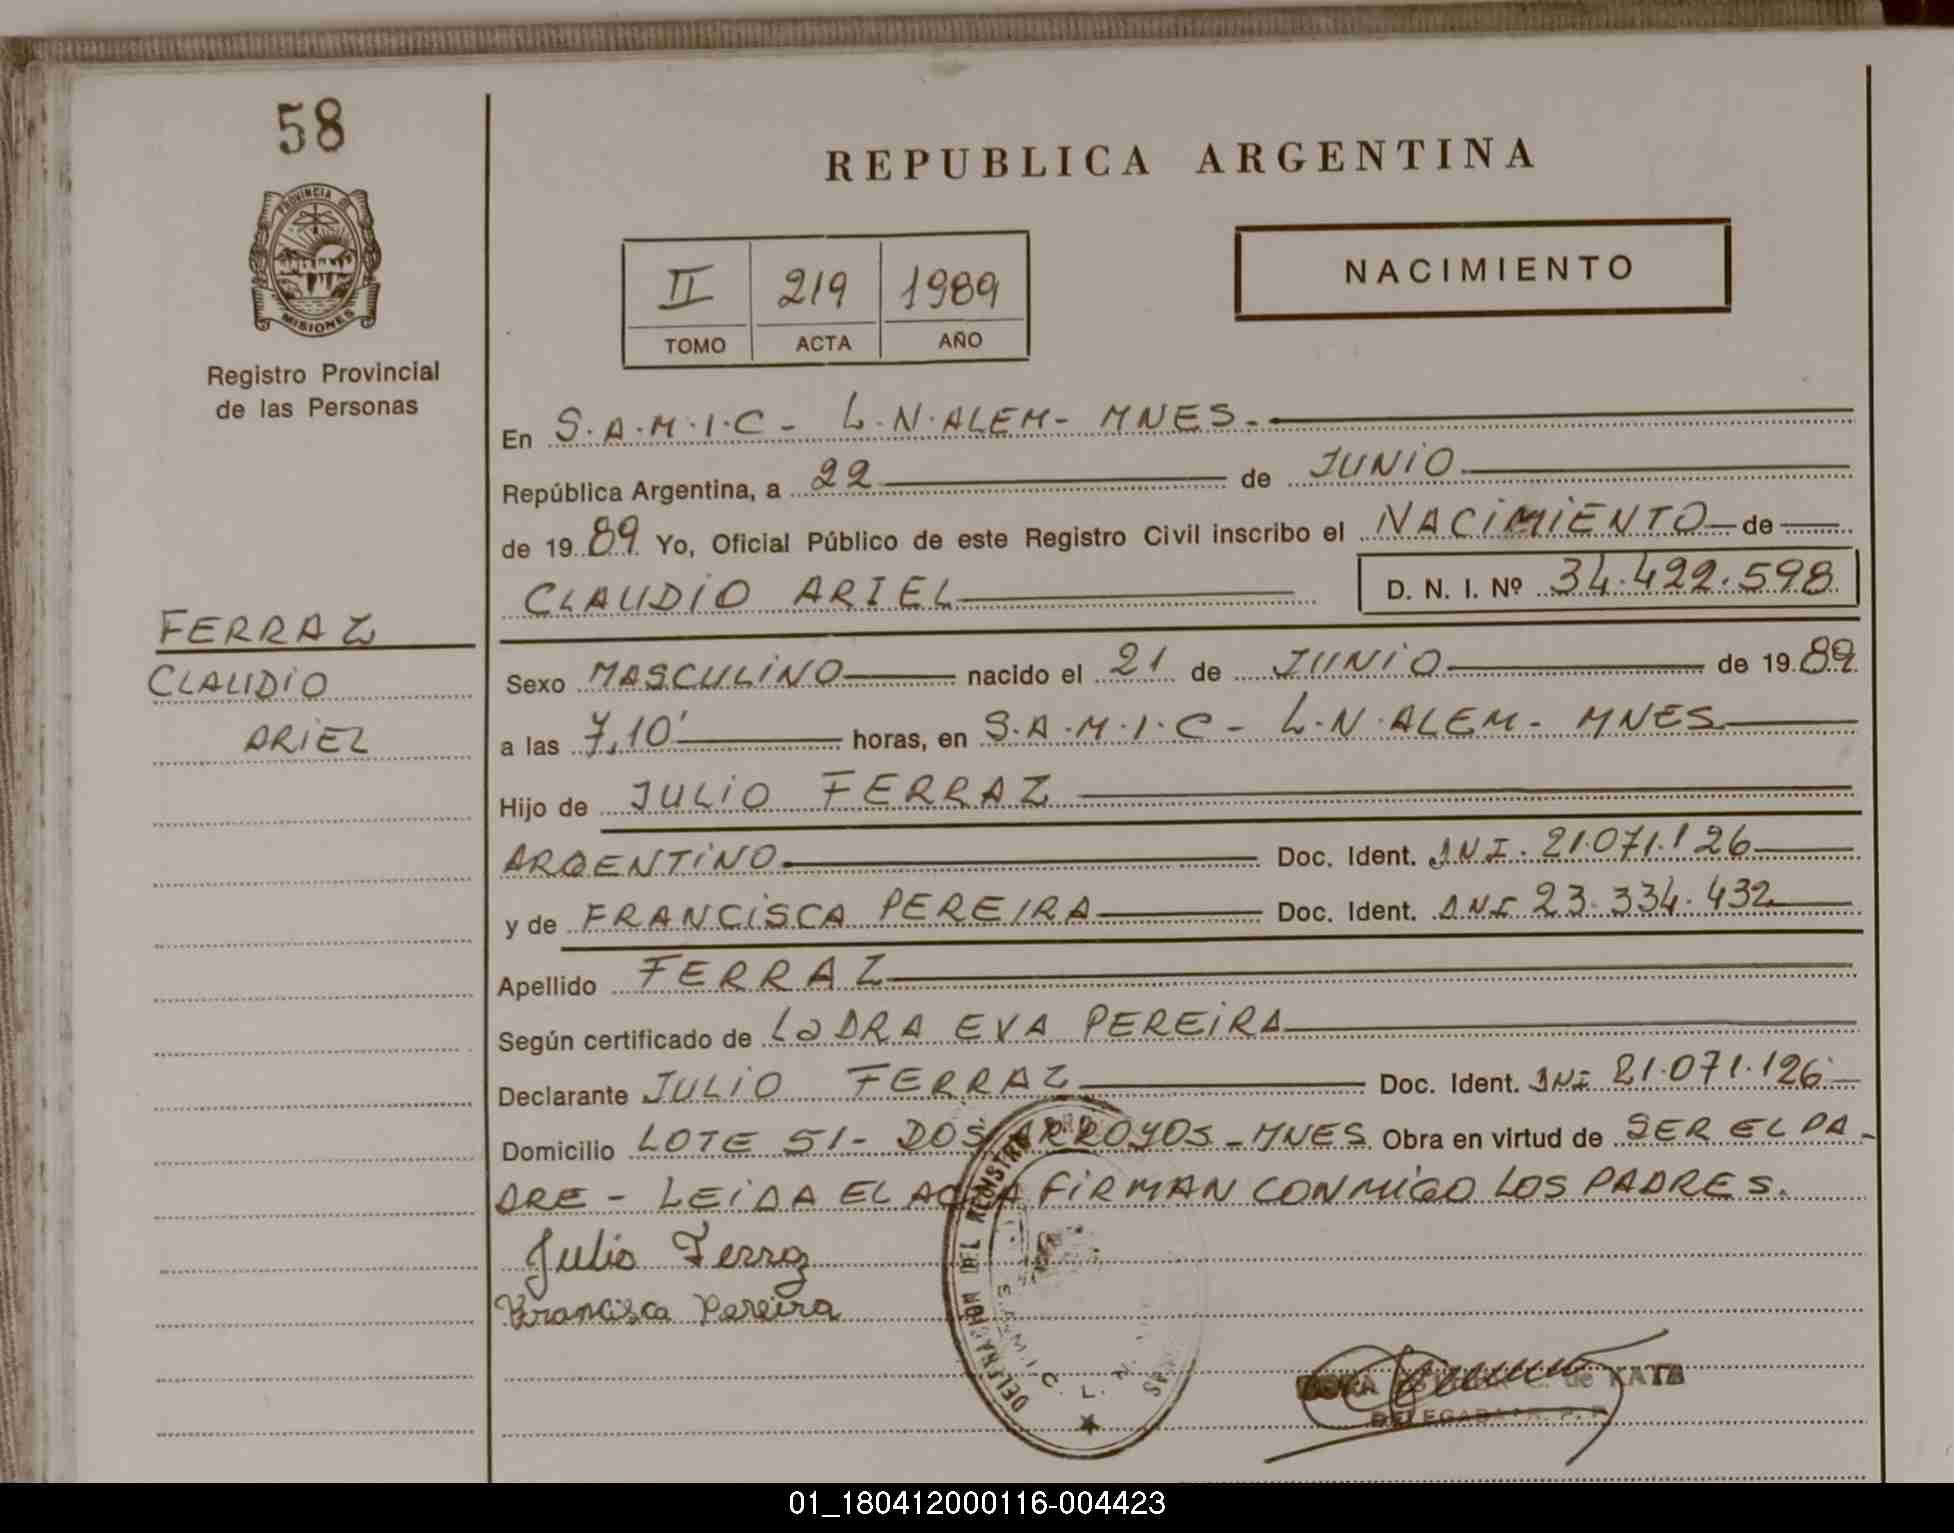 58
PROVINCIA DE
MISIONES
Registro Provincial
de las Personas
FERRAZ
CLAUDIO
ARIEL
REPUBLICA ARGENTINA
II 219 1989
TOMO ACTA AÑO
NACIMIENTO
En S.A.M.I.C - L.N.ALEM- MNES.
República Argentina, a 22 de JUNIO
de 1989 Yo, Oficial Público de este Registro Civil inscribo el NACIMIENTO de
CLAUDIO ARIEL D. N. I. Nº 34.422.598
Sexo MASCULINO nacido el 21 de JUNIO de 1989
a las 7,10' horas, en S.A.M.I.C - L.N.ALEM- MNES
Hijo de JULIO FERRAZ
ARGENTINO Doc. Ident. DNI. 21.071.126
y de FRANCISCA PEREIRA Doc. Ident. DNI 23.334.432
Apellido FERRAZ
Según certificado de LaDRA EVA PEREIRA
Declarante JULIO FERRAZ Doc. Ident. DNI 21.071.126
Domicilio LOTE 51- DOS ARROYOS - MNES Obra en virtud de SER EL PA-
DRE - LEIDA EL ACTA FIRMAN CONMIGO LOS PADRES.
Julio Ferraz
Francisca Pereira
C. de KATZ
DELEGADA R. P. P.
01_180412000116-004423